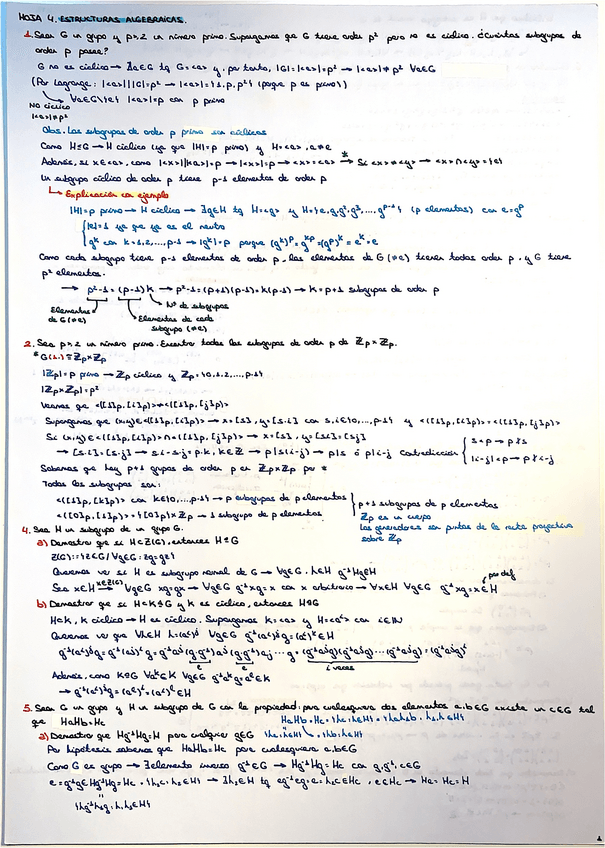 HOJA 4. ESTRUCTURAS ALGEBRAICAS.
1. Sean G un grupo y p≥2 un número primo. Supongamos que G tiene orden p² pero no es cíclico. ¿Cuántos subgrupos de
orden p posee?
G no es cíclico → ∄a∈G tq G=<a> y, por tanto, |G|=|<a>|=p² → |<a>|≠p² ∀a∈G
(Por Lagrange: |<a>|||G|=p² → |<a>|=1,p,p² (porque p es primo))
→ ∀a∈G\{e} |<a>|=p con p primo
No cíclico
|<a>|≠p²
Obs. Los subgrupos de orden p primo son cíclicos
Como H≤G → H cíclico (ya que |H|=p primo) y H=<a>, a≠e
Además, si x∈<a>, como |<x>|||<a>|=p → |<x>|=p → <x>=<a> →* Si <x>≠<y> → <x>∩<y>={e}
Un subgrupo cíclico de orden p tiene p-1 elementos de orden p
↳ Explicación con ejemplo
|H|=p primo → H cíclico → ∃g∈H tq H=<g> y H={e,g,g²,g³,...,g^{p-1}} (p elementos) con e=g^p
|e|=1 ya que ya es el neutro
g^k con k=1,2,...,p-1 → |g^k|=p porque (g^k)^p=g^{kp}=(g^p)^k=e^k=e
Como cada subgrupo tiene p-1 elementos de orden p, los elementos de G (≠e) tienen todos orden p, y G tiene
p² elementos.
→ p²-1=(p-1)k → p²-1=(p+1)(p-1)=k(p-1) → k=p+1 subgrupos de orden p
Elementos de G(≠e)
Elementos de cada subgrupo (≠e)
Nº de subgrupos
2. Sea p≥2 un número primo. Encontrar todos los subgrupos de orden p de ℤp×ℤp.
* G(1.)≅ℤp×ℤp
|ℤp|=p primo → ℤp cíclico y ℤp={0,1,2,...,p-1}
|ℤp×ℤp|=p²
Veamos que <([1]p,[i]p)>≠<([1]p,[j]p)>
Supongamos que (x,y)∈<([1]p,[i]p)> → x=[s], y=[s·i] con s,i∈{0,...,p-1} y <([1]p,[i]p)>=<([1]p,[j]p)>
Si (x,y)∈<([1]p,[i]p)>∩<([1]p,[j]p)> → x=[s], y=[si]=[sj]
→ [s·i]=[s·j] → s·i-s·j=p·k, k∈ℤ → p|s(i-j) → p|s ó p|i-j Contradicción { s<p → p∤s
|i-j|<p → p∤i-j
Sabemos que hay p+1 grupos de orden p en ℤp×ℤp por *
Todos los subgrupos son:
<([1]p,[k]p)> con k∈{0,...,p-1} → p subgrupos de p elementos
<([0]p,[1]p)>={[0]p}×ℤp → 1 subgrupo de p elementos
p+1 subgrupos de p elementos
ℤp es un cuerpo
los generadores son puntos de la recta proyectiva
sobre ℤp
4. Sea H un subgrupo de un grupo G.
a) Demostrar que si H⊂Z(G), entonces H⊴G
Z(G):={z∈G/∀g∈G: zg=gz}
Queremos ver si H es subgrupo normal de G → ∀g∈G, h∈H g⁻¹Hg∈H
Sea x∈H →x∈Z(G) ∀g∈G xg=gx → ∀g∈G g⁻¹xg=x con x arbitrario → ∀x∈H ∀g∈G g⁻¹xg=x∈H
por def
b) Demostrar que si H<K⊴G y K es cíclico, entonces H⊴G
H<K, K cíclico → H es cíclico. Supongamos K=<a> y H=<aⁱ> con i∈ℕ
Queremos ver que ∀h∈H h=(aⁱ)ʲ ∀g∈G g⁻¹(aⁱ)ʲg=(aⁱ)ᵏ∈H
Además, como K⊴G ∀aʲ∈K ∀g∈G g⁻¹aʲg=aˡ∈K
→ g⁻¹(aⁱ)ʲg=(aˡ)ⁱ=(aⁱ)ˡ∈H
5. Sean G un grupo y H un subgrupo de G con la propiedad: para cualesquiera dos elementos a,b∈G existe un c∈G tal
que HaHb=Hc
HaHb=Hc={hc:h∈H}={h₁ah₂b:h₁,h₂∈H}
a) Demostrar que Hg⁻¹Hg=H para cualquier g∈G
Por hipótesis sabemos que HaHb=Hc para cualesquiera a,b∈G
Como G es grupo → ∃elemento inverso g⁻¹∈G → Hg⁻¹Hg=Hc con g,g⁻¹,c∈G
e=g⁻¹g∈Hg⁻¹Hg=Hc={h₂c:h₂∈H} → ∃h₂∈H tq eg⁻¹eg=e=h₂c∈Hc, e∈Hc → He=Hc=H
{hg⁻¹h₂g:h,h₂∈H}
1